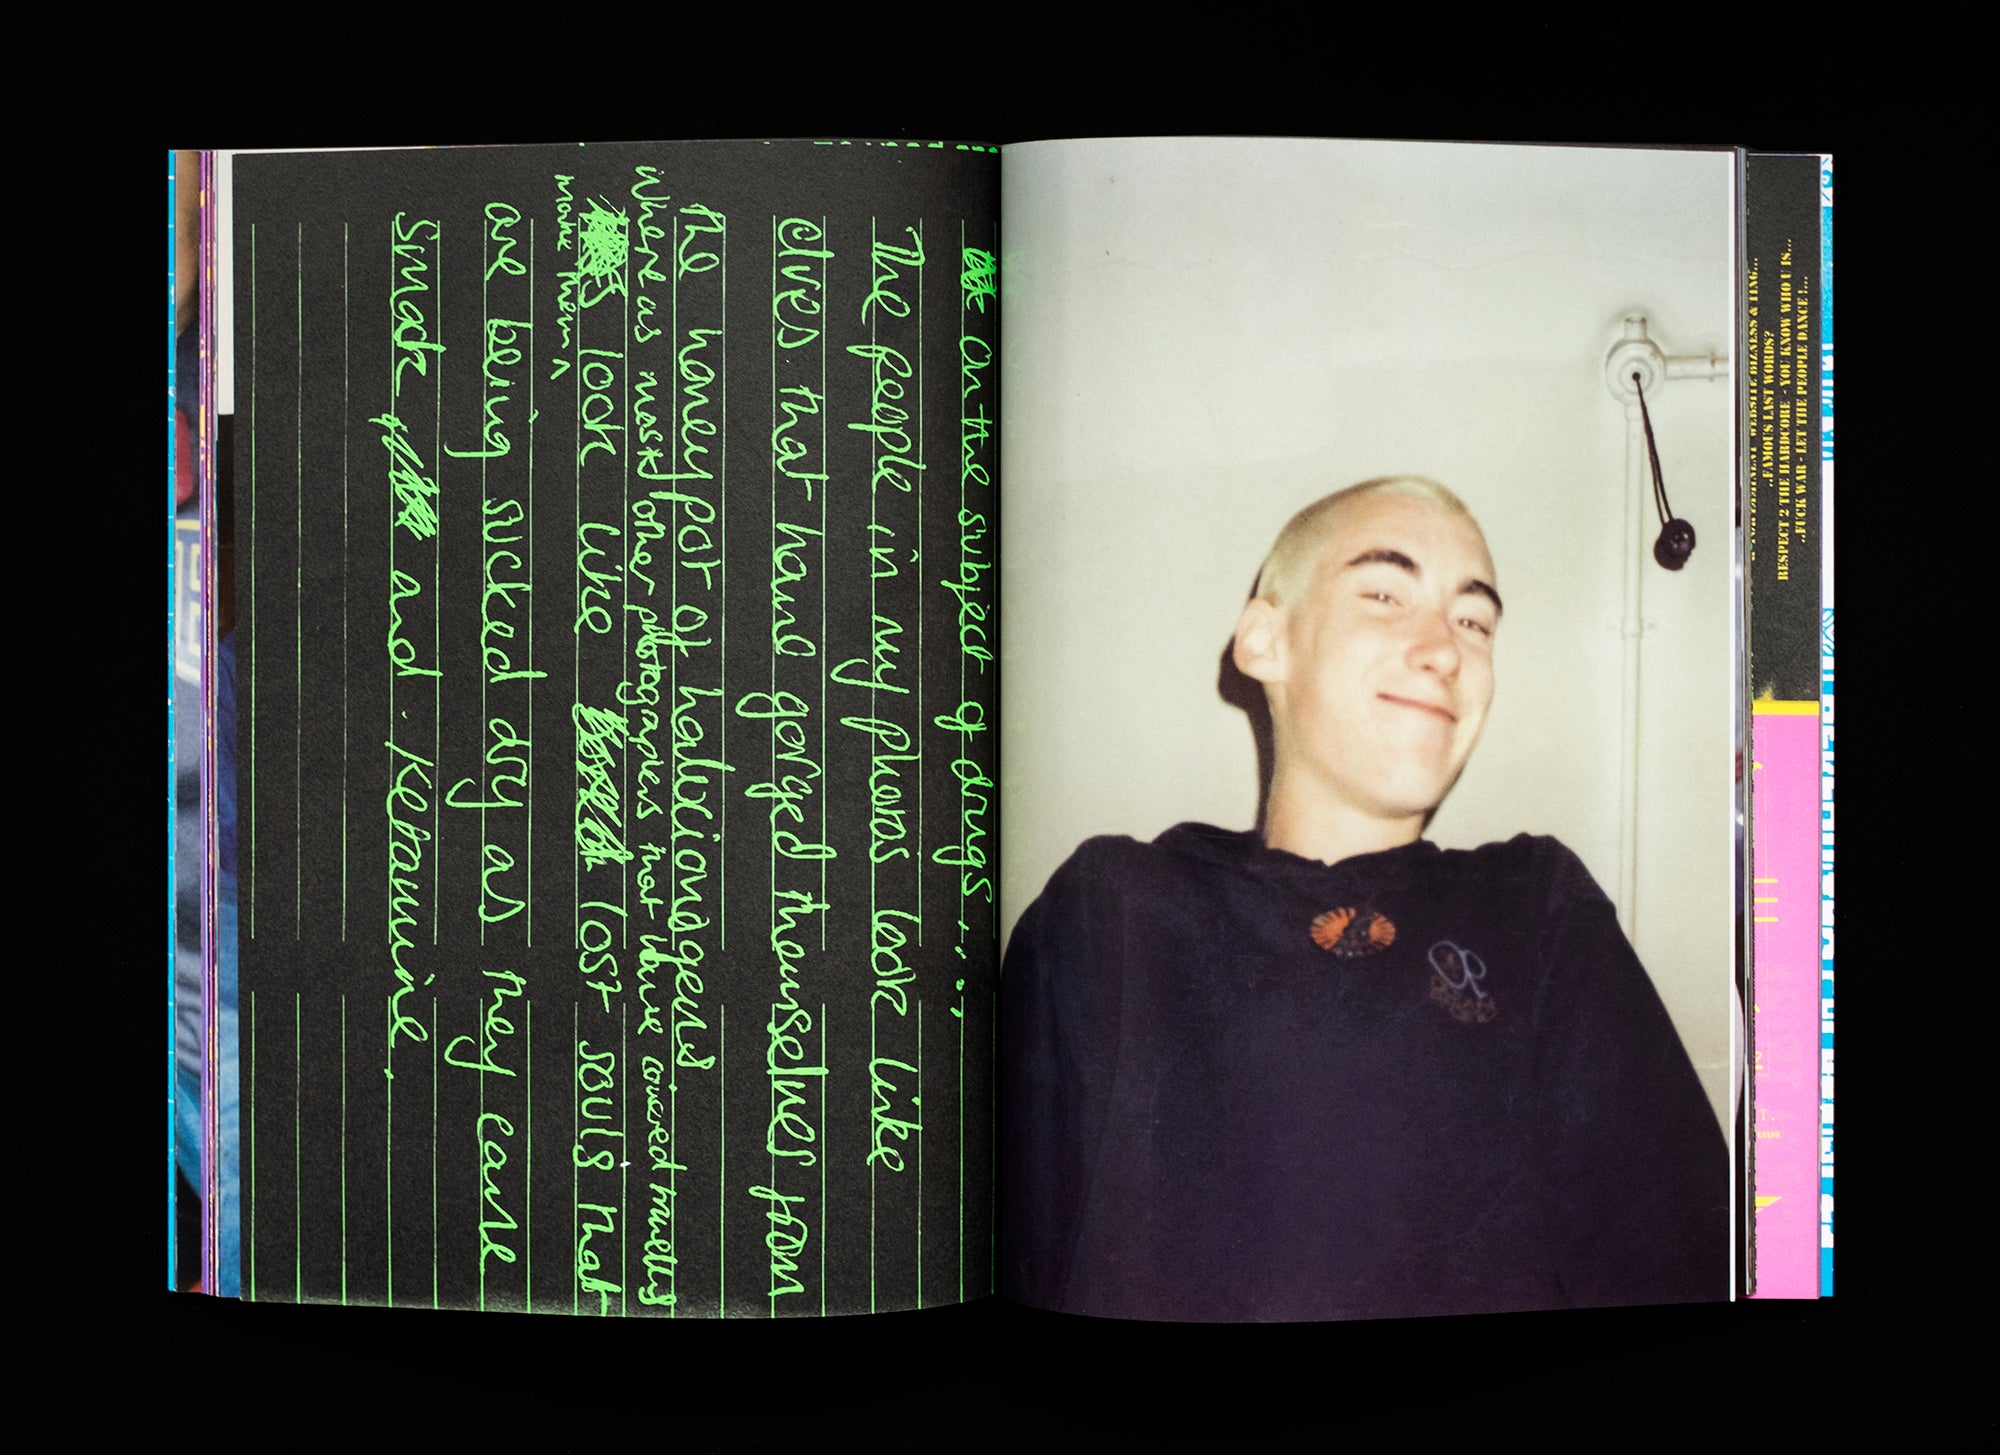 On the subject of drugs....,
The people in my photos look like
elves that have gorged themselves from
the honey pot of halucionagens.
where as most other photographers that have covered
make them ^
look like lost souls that
are being sucked dry as they
smack and Ketamine.
OP
WEBSITE BIZNESS & TING...
..FAMOUS LAST WORDS?
RESPECT 2 THE HARDCORE - YOU KNOW WHO U IS...
..FUCK WAR - LET THE PEOPLE DANCE !...